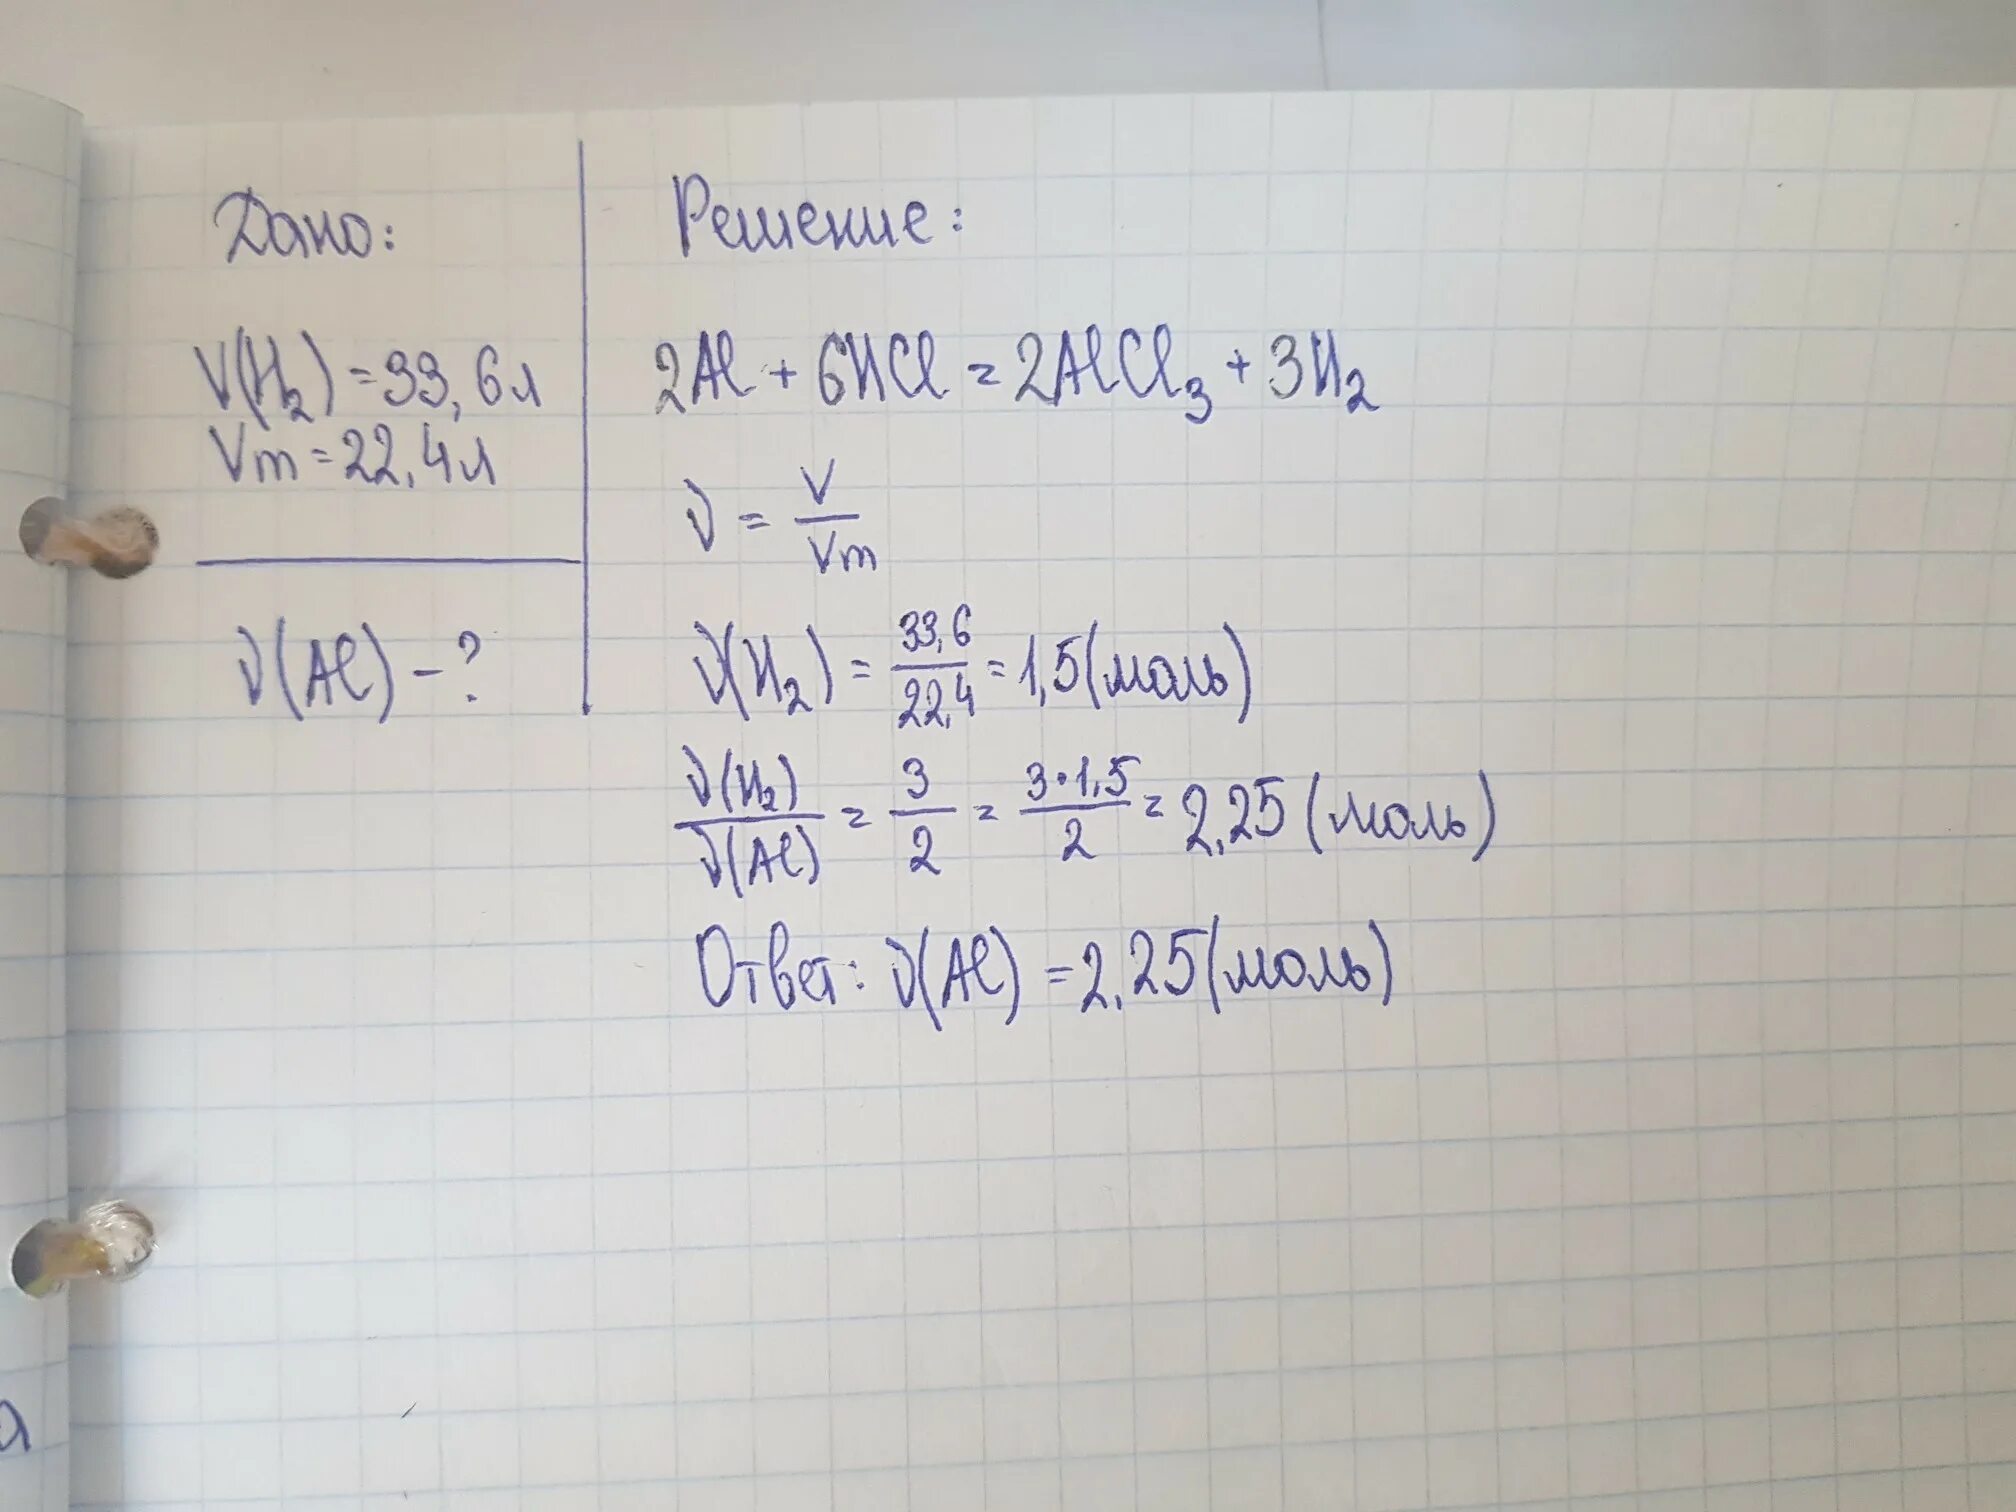 Дано:
V(H₂) = 33,6 л
Vm = 22,4 л
ν(Al) - ?
Решение:
2Al + 6HCl = 2AlCl₃ + 3H₂
ν = V/Vm
ν(H₂) = 33,6/22,4 = 1,5 (моль)
ν(H₂)/ν(Al) = 3/2 = 3·1,5/2 = 2,25 (моль)
Ответ: ν(Al) = 2,25 (моль)
а